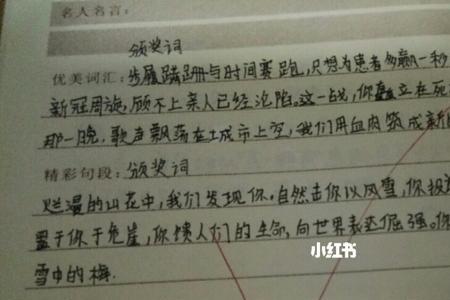 名人名言：
颁奖词
优美词汇：步履蹒跚与时间赛跑，只想为患者多赢一秒
新冠周旋，顾不上亲人已经沦陷。这一战，你矗立在死
那一晚，歌声飘荡在土城市上空，我们用血肉筑成新的
精彩句段：颁奖词
烂漫的山花中，我们发现你。自然击你以风雪，你报
置于你于危崖，你馈人们的生命，向世界表达倔强。你
雪中的梅.
小红书